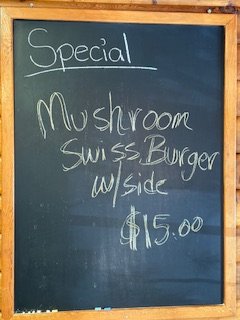 Special
Mushroom
Swiss Burger
w/side
$15.00